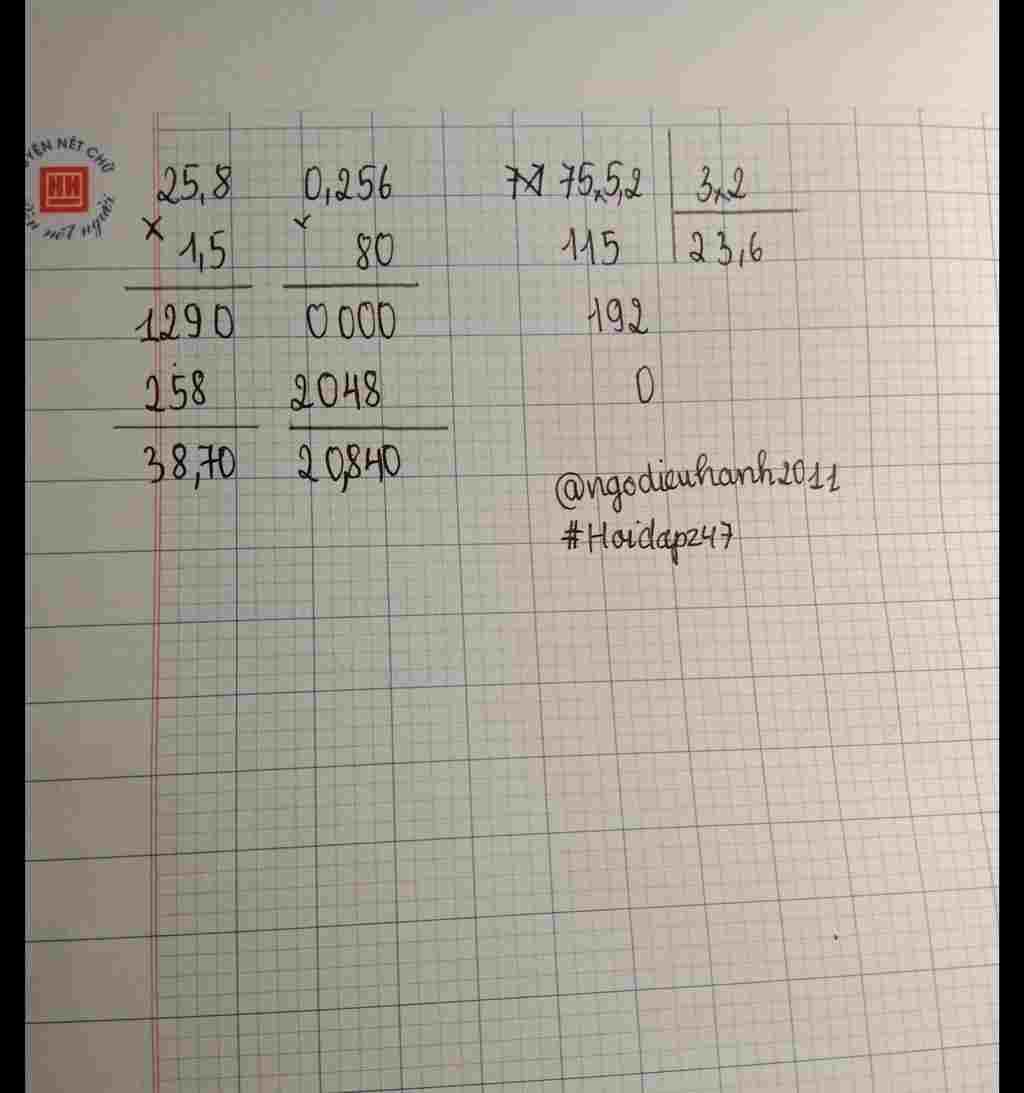 LUYỆN NÉT CHỮ
HH
rèn nết người
25,8 0,256 75,5,2 3,2
× 1,5 × 80 115 23,6
1290 0000 192
258 2048 0
38,70 20,840
@ngodieuhanh2011
#Hoidap247